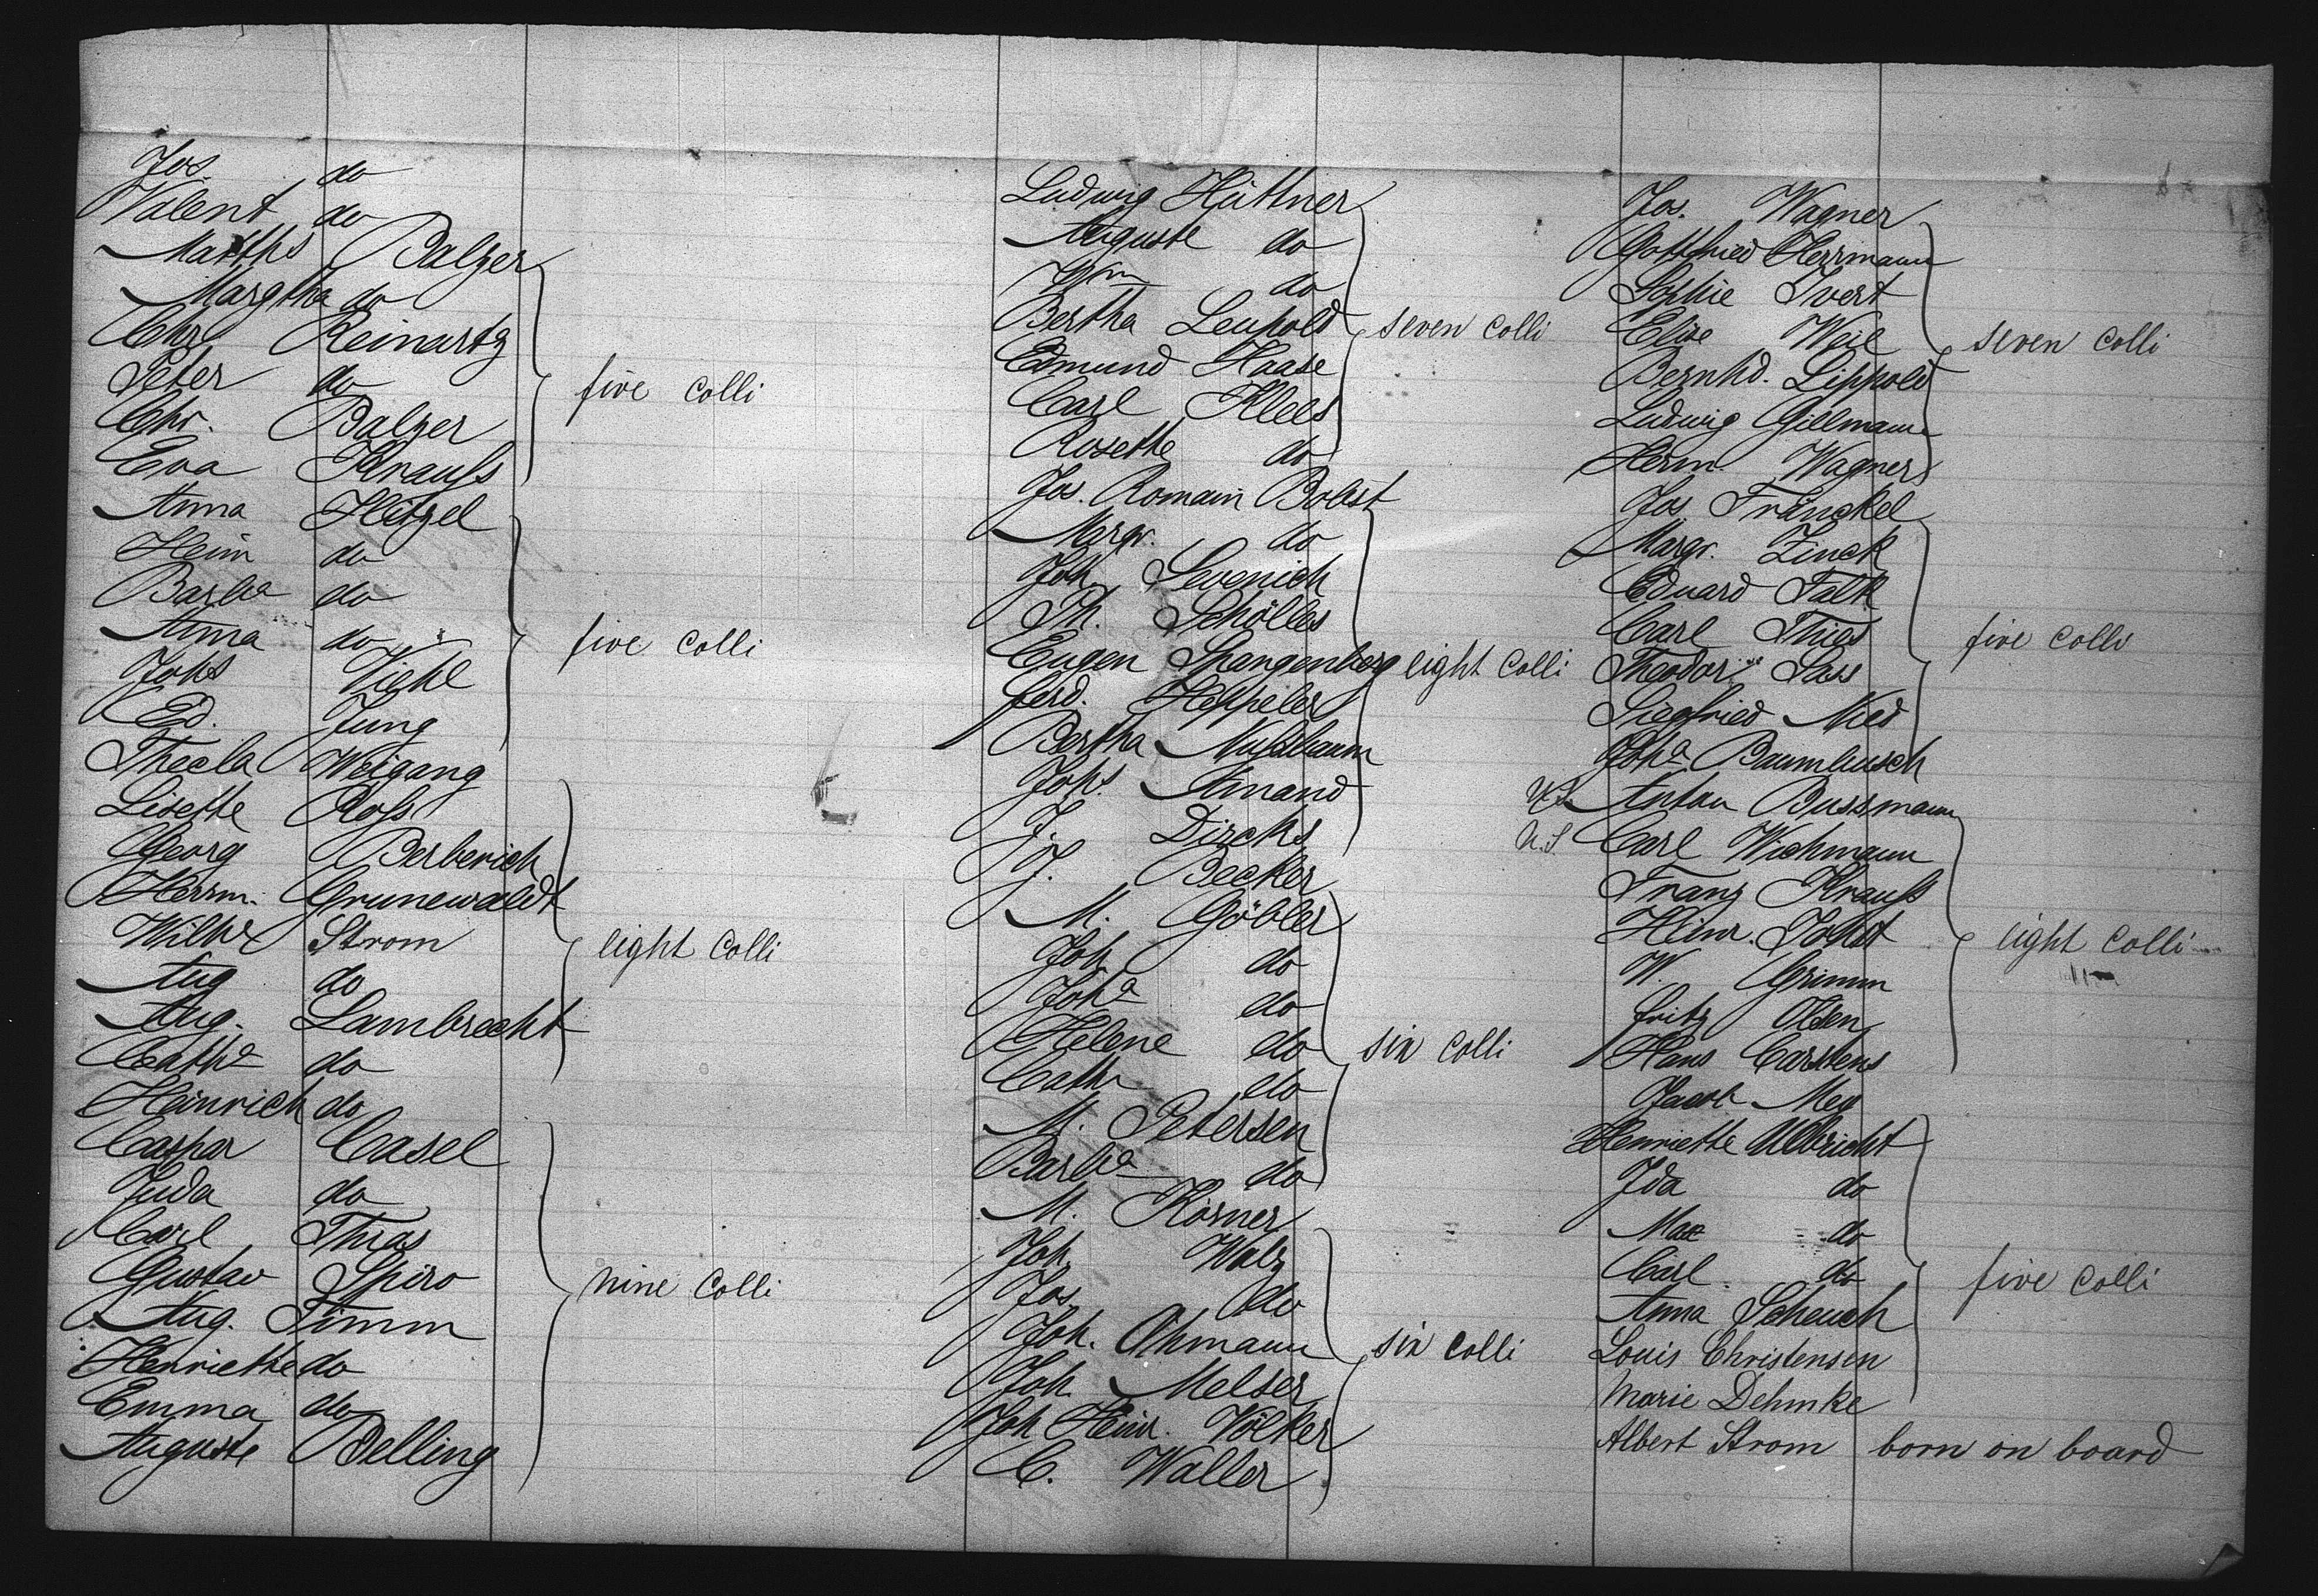 Jos. do
Valent do
Matths Balzer
Margtha do
Chr Reinartz
Peter do
five colli
Chr. Balzer
Eva Krauss
Anna Hitzel
Heinr do
Barba do
Anna do
five colli
Johs Viehl
Ed. Jung
Thecla Weigang
Lisette Ross
Georg Berberich
Herrm. Grunewaldt
Wilhe Strom
eight colli
Aug do
Aug. Lambrecht
Catha do
Heinrich do
Caspar Casel
Juda do
Carl Thias
Gustav Spiro
nine colli
Aug. Timm
Henriette do
Emma do
Auguste Belling
Ludwig Hüttner
Auguste do
Wm do
Bertha Leupold
seven colli
Edmund Haase
Carl Klees
Rosette do
Jos. Romain Bobst
Margr. do
Joh. Sevenich
Ph. Schölles
Eugen Spangenberg eight colli
Ferd. Heppeler
Bertha Nussbaum
Johs Amand
J. Dircks
J. Becker
M. Göbler
Joh do
Joha do
Helene do
six colli
Cath do
M. Petersen
Barba do
M. Körner
Joh Walz
Jos do
Joh. Ohmann
six colli
Joh. Melser
Joh Heinr. Völker
C. Waller
Jos. Wagner
Gottfried Herrmann
Sophie Ivert
Elise Weil
seven colli
Bernhd. Lippold
Ludwig Gillmann
Herm. Wagner
Jos Fränckel
Margr. Zinck
Eduard Falk
Carl Thies
five colli
Theodor Sass
Siegfried Nied
Joha Baumbusch
U.S. Anton Bussmann
U.S. Carl Wichmann
Franz Krauss
Heinr. Jobst
eight colli
W. Grimm
Fritz Olsen
Hans Carstens
Jacob Mey
Henriette Albricht
Ida do
Max do
Carl do
five colli
Anna Scheuch
Louis Christensen
Marie Dehmke
Albert Strom born on board